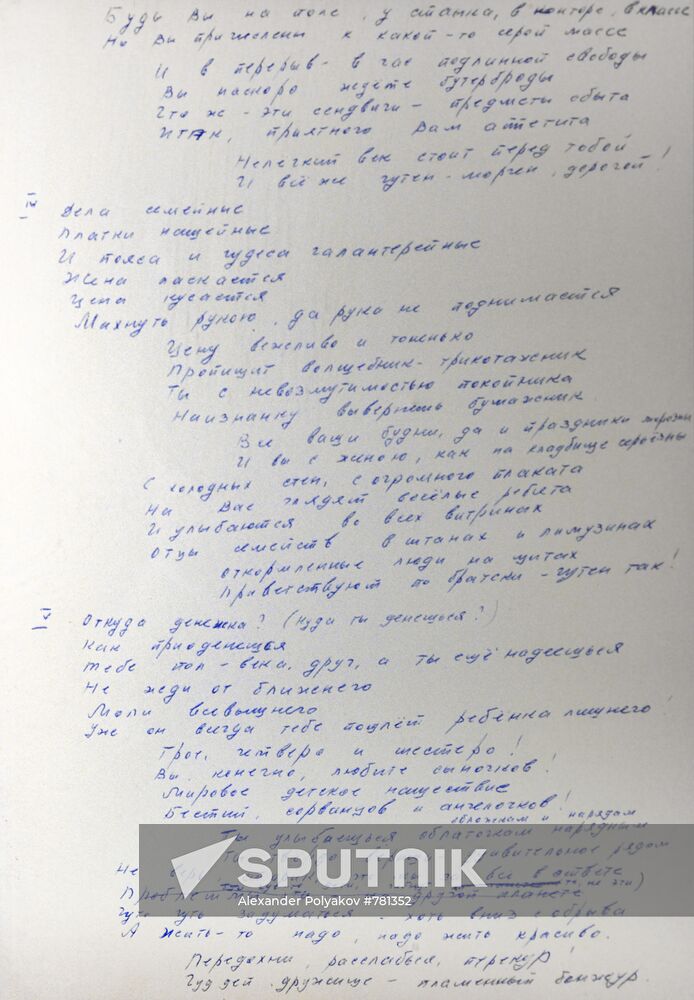 Будь Вы на поле, у станка, в конторе, в классе
Но Вы причислены к какой-то серой массе
И в перерыв - в час подлинной свободы
Вы наскоро жуёте бутерброды
Что ж - эти сендвичи - предметы сбыта
Итак, приятного Вам аппетита
Нелёгкий век стоит перед тобой
И всё же гутен - морген, дорогой!
IV
Дела семейные
Платки нашейные
И пояса и чудеса галантерейные
Жена ласкается
Цена кусается
Махнуть рукою, да рука не поднимается
Цену вежливо и тоненько
Пропищит волшебник - трикотажник
Ты с невозмутимостью покойника
Наизнанку вывернешь бумажник
Все ваши будни, да и праздники морозны
И вы с женою, как на кладбище серьёзны
С холодных стен, с огромного плаката
На Вас глядят весёлые ребята
И улыбаются во всех витринах
Отцы семейств в штанах и лимузинах
Откормленные люди на щитах
Приветствуют по братски - гутен так!
V
Откуда денежка? (Куда ты денешься?)
Как приоденешься
Тебе пол-века, друг, а ты ещё надеешься
Не жди от ближнего
Моли всевышнего
Уже он всегда тебе пошлёт ребёнка лишнего!
Трое, четверо и шестеро!
Вы, конечно, любите сыночков!
Мировое детское нашествие
Бестий, сорванцов и ангелочков!
обложкам и нарядам
Ты улыбаешься облаточкам нарядным
SPUTNIK
Alexander Polyakov #781352
Чуть чуть задуматься - хоть вниз с обрыва
А жить-то надо, надо жить красиво.
Передохни, расслабься, перекур!
Гуд дей, дружище - пламенный бонжур.